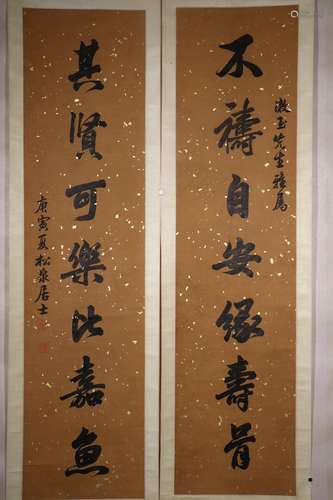 不禱自安緣壽骨
漱玉先生雅屬
其賢可樂比嘉魚
庚寅夏松泉居士